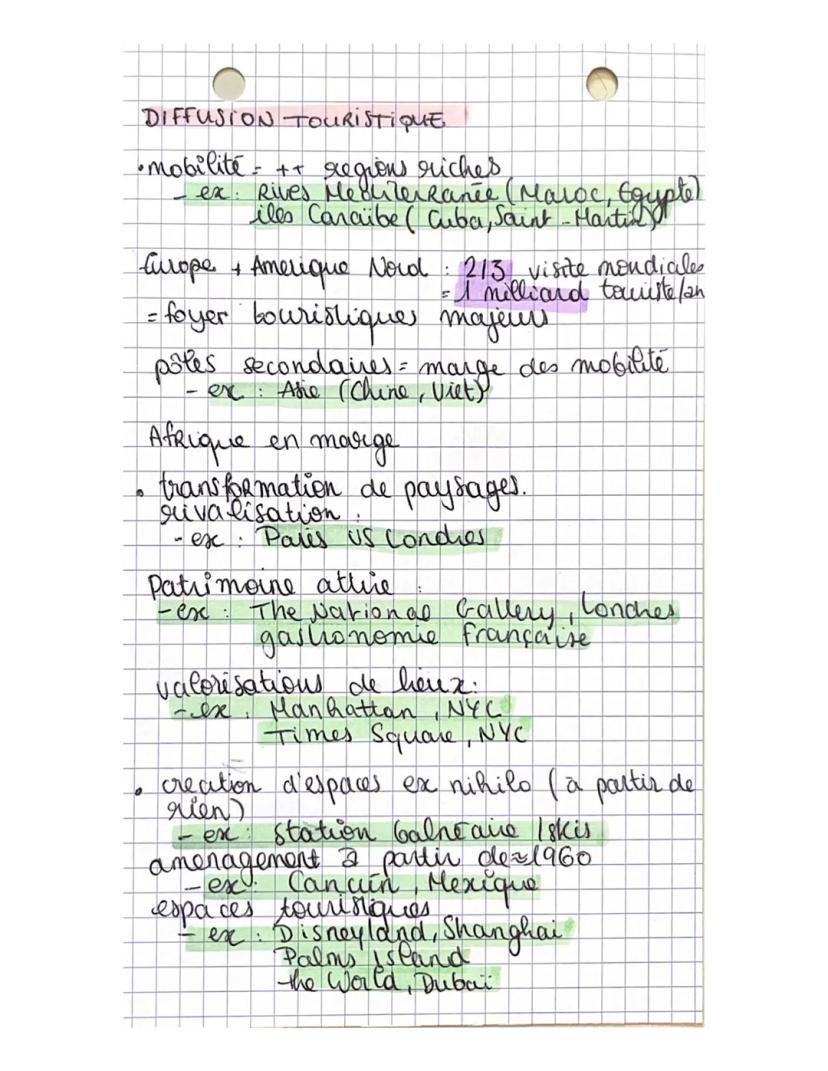 DIFFUSION TOURISTIQUE
• mobilité = ++ regions riches
- ex : Rives Mediterranée (Maroc, Egypte)
iles Caraïbe ( Cuba, Saint - Martin)
Europe + Amerique Nord : 2/3 visite mondiales
= 1 milliard touriste/an
= foyer touristiques majeurs
pôles secondaires = marge des mobilité
- ex : Asie (Chine, Viet)
Afrique en marge
• transformation de paysages.
rivalisation :
- ex : Paris VS Londres
Patrimoine attire :
- ex : The National Gallery, Londres
gastronomie française
valorisations de lieux :
- ex : Manhattan, NYC
Times Square, NYC
• creation d'espaces ex nihilo ( à partir de
rien)
- ex : station balnéaire / skis
amenagement à partir de ≈ 1960
- ex : Cancùn, Mexique
espaces touristiques
- ex : Disneyland, Shanghai
Palms Island
the World, Dubaï